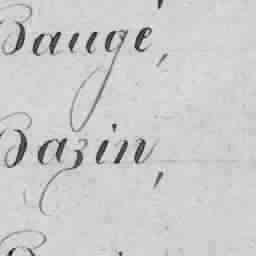 Baugé,
Bazin,